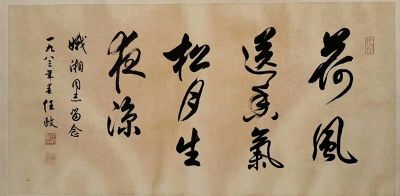 荷風
送香氣
松月生
夜涼
娥湘同志留念
一九八三年春任政